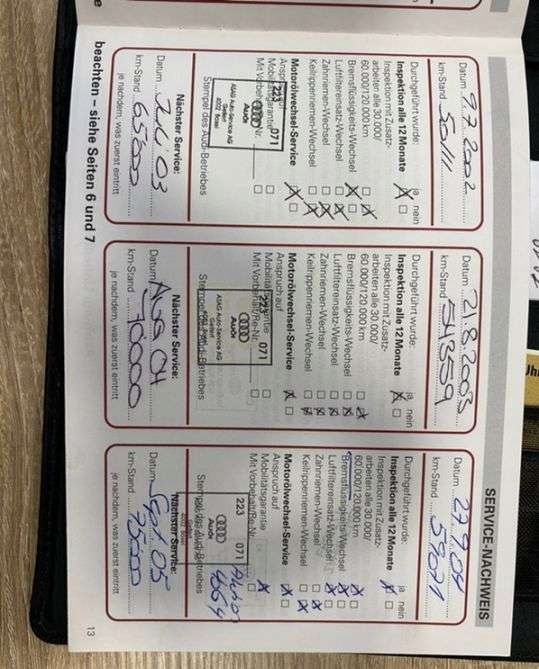 SERVICE-NACHWEIS
Datum 9.7.2002
km-Stand 50111
Durchgeführt wurde: ja nein
Inspektion alle 12 Monate
Inspektion mit Zusatz-
arbeiten alle 30.000/
60.000/120.000 km
Bremsflüssigkeits-Wechsel
Luftfiltereinsatz-Wechsel
Zahnriemen-Wechsel
Keilrippenriemen-Wechsel
Motorölwechsel-Service
Anspruch auf
Mobilitätsgarantie
Mit Vorbehalt/Re-Nr.
223 071
Audi
ASAG Auto-Service AG
Gellert
4052 Basel
Stempel des Audi-Betriebes
Nächster Service:
Datum Juli 03
km-Stand 65'000
je nachdem, was zuerst eintritt
Datum 21.8.2003
km-Stand 54359
Durchgeführt wurde: ja nein
Inspektion alle 12 Monate
Inspektion mit Zusatz-
arbeiten alle 30.000/
60.000/120.000 km
Bremsflüssigkeits-Wechsel
Luftfiltereinsatz-Wechsel
Zahnriemen-Wechsel
Keilrippenriemen-Wechsel
Motorölwechsel-Service
Anspruch auf
Mobilitätsgarantie
Mit Vorbehalt/Re-Nr.
223 071
Audi
ASAG Auto-Service AG
Gellert
Nächster Service:
Datum Aug 04
km-Stand 70000
je nachdem, was zuerst eintritt
Datum 27.9.04
km-Stand 59071
Durchgeführt wurde: ja nein
Inspektion alle 12 Monate
Inspektion mit Zusatz-
arbeiten alle 30.000/
60.000/120.000 km
Bremsflüssigkeits-Wechsel
Luftfiltereinsatz-Wechsel
Zahnriemen-Wechsel
Keilrippenriemen-Wechsel
Motorölwechsel-Service
Anspruch auf
Mobilitätsgarantie
Mit Vorbehalt/Re-Nr.
223 071
Audi
Nächster Service:
Datum Sept. 05
km-Stand 75000
je nachdem, was zuerst eintritt
beachten – siehe Seiten 6 und 7
13